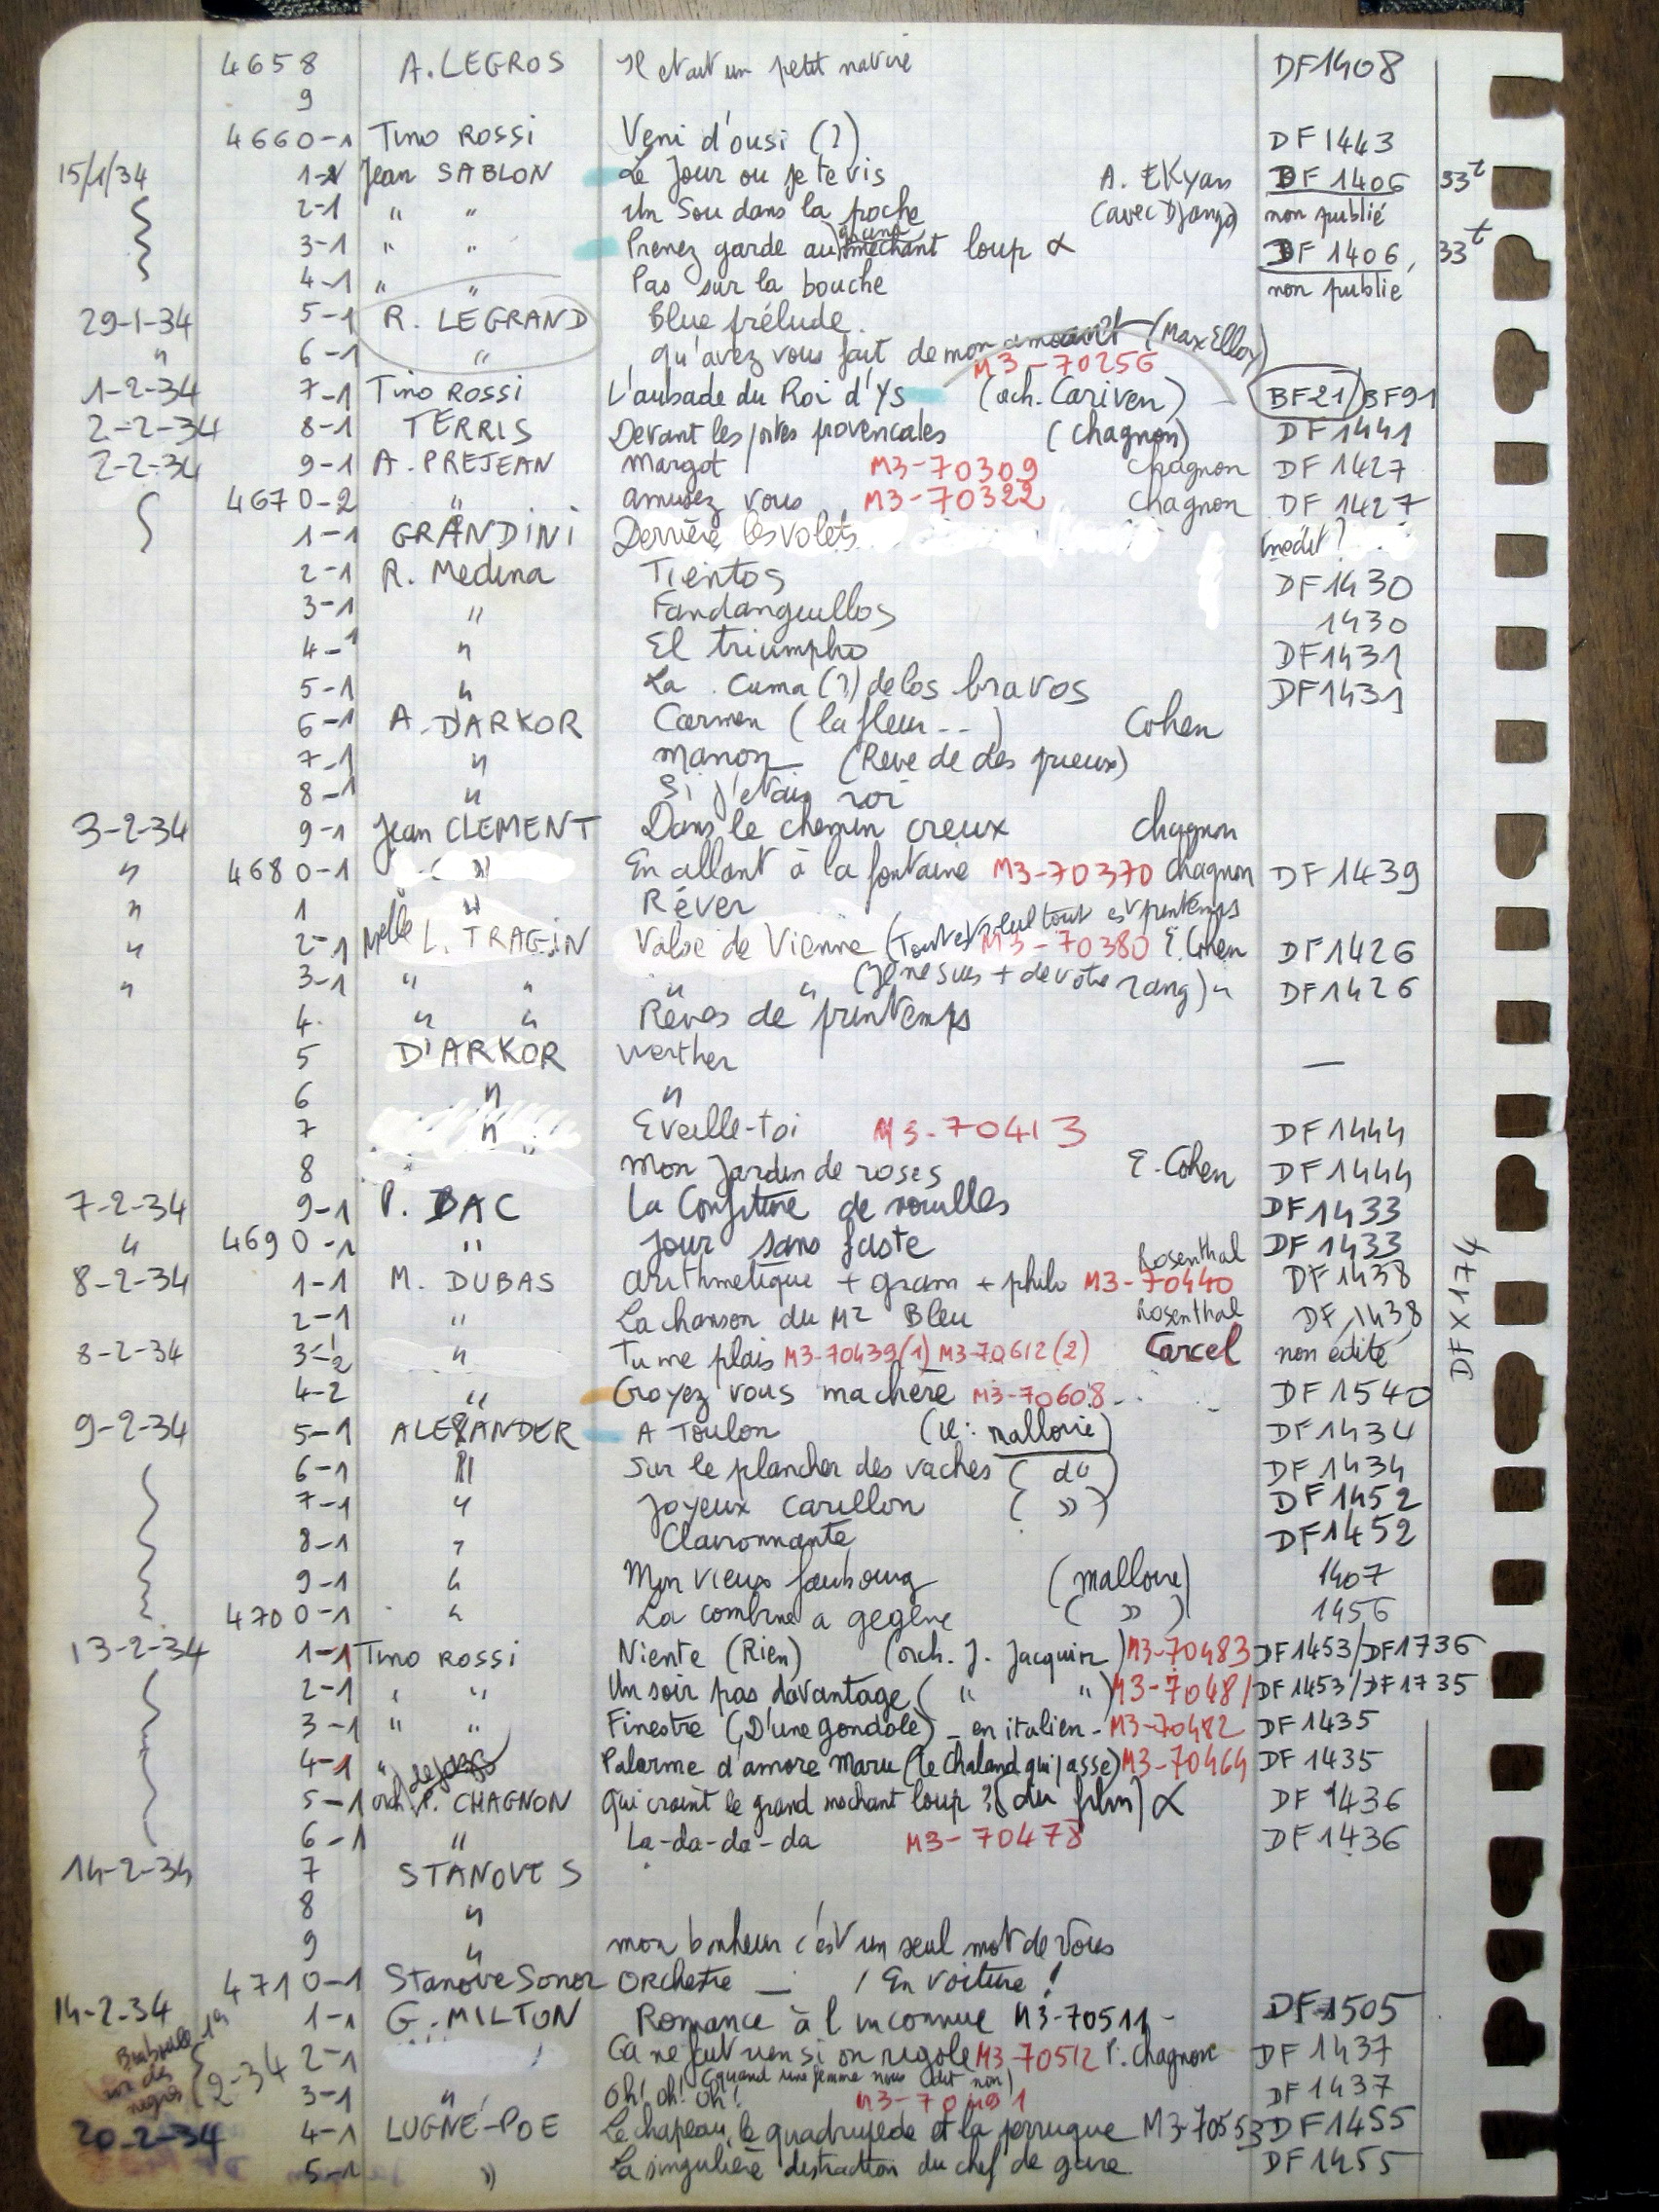 4658 A. LEGROS Il etait un petit navire DF1408
9
4660-1 Tino ROSSI Veni d'ousi (?) DF1443
15/1/34 1-2 Jean SABLON Le Jour ou je te vis A. EKyan DF 1406 33t
2-1 " " Un Sou dans la poche (avec Django) non publié
3-1 " " Prenez garde au grand méchant loup α DF 1406, 33t
4-1 " " Pas sur la bouche non publié
29-1-34 5-1 R. LEGRAND Blue prélude.
" 6-1 " qu'avez vous fait de mon amant (Max Elloy)
M3-70256
1-2-34 7-1 Tino ROSSI L'aubade du Roi d'YS (orch. Cariven) BF21/BF91
2-2-34 8-1 TERRIS Devant les portes provencales (Chagnon) DF1441
2-2-34 9-1 A. PREJEAN Margot M3-70309 Chagnon DF 1427
4670-2 " amusez vous M3-70322 Chagnon DF 1427
1-1 GRANDINI Derrière les volets inédit?
2-1 R. Medina Tientos DF1430
3-1 " Fandanguillos 1430
4-1 " El triumpho DF1431
5-1 " La Cuma (?) de los bravos DF1431
6-1 A. D'ARKOR Carmen (la fleur --) Cohen
7-1 " Manon (Reve de des grieux)
8-1 " Si j'etais roi
3-2-34 9-1 Jean CLEMENT Dans le chemin creux Chagnon
" 4680-1 " En allant à la fontaine M3-70370 Chagnon DF1439
" 1 " Rêver
" 2-1 Melle L. TRAGIN Valse de Vienne (Tout est seul tout est printemps M3-70380 E. Cohen DF1426
" 3-1 " " " " (Je ne suis + de votre rang) " DF1426
4. " " Rêves de printemps
5 D'ARKOR Werther —
6 " "
7 " Eveille-toi M3-70413 DF1444
8 Mon Jardin de roses E. Cohen DF1444
7-2-34 9-1 P. DAC La Confiture de nouilles DF1433
" 4690-1 " Jour sans faste DF1433
8-2-34 1-1 M. DUBAS arithmetique + gram + philo M3-70440 Rosenthal DF1438
2-1 " La chanson du Mr Bleu Rosenthal DF1438
8-2-34 3-1/2 " Tu me plais M3-70439(1) M3-70612(2) Carcel non édité
4-2 " Croyez vous ma chère M3-70608- DF1540
DFX174
9-2-34 5-1 ALEXANDER A Toulon (V: Malloire) DF1434
6-1 " Sur le plancher des vaches (do) DF1434
7-1 " Joyeux carillon (») DF1452
8-1 " Claironnante DF1452
9-1 " Mon vieux faubourg (Malloire) 1407
4700-1 " La combine a gegène (») 1456
13-2-34 1-1 Tino ROSSI Niente (Rien) (orch. J. Jacquin) M3-70483 DF1453/DF1736
2-1 " " Un soir pas davantage (" ") M3-70481 DF1453/DF1735
3-1 " " Finestre (D'une gondole) - en italien - M3-70482 DF1435
4-1 " Palerme d'amore Maru (le chaland qui passe) M3-70464 DF1435
5-1 orch de jazz P. CHAGNON qui craint le grand mechant loup? (du film) α DF 1436
6-1 " La-da-da-da M3-70478 DF1436
14-2-34 7 STANOVES
8 "
9 " mon bonheur c'est un seul mot de vous
4710-1 Stanove Sonor Orchestre — ! En voiture!
14-2-34 1-1 G. MILTON Romance à l'inconnue M3-70511- DF1505
2-34 2-1 Ca ne fait rien si on rigole M3-70512 P. Chagnon DF1437
3-1 " Oh! Oh! Oh! (quand une femme nous dit non) DF1437
20-2-34 4-1 LUGNE-POE Le chapeau, le quadrupede et la perruque M3-70553 DF1455
5-1 » La singulière distraction du chef de gare DF1455